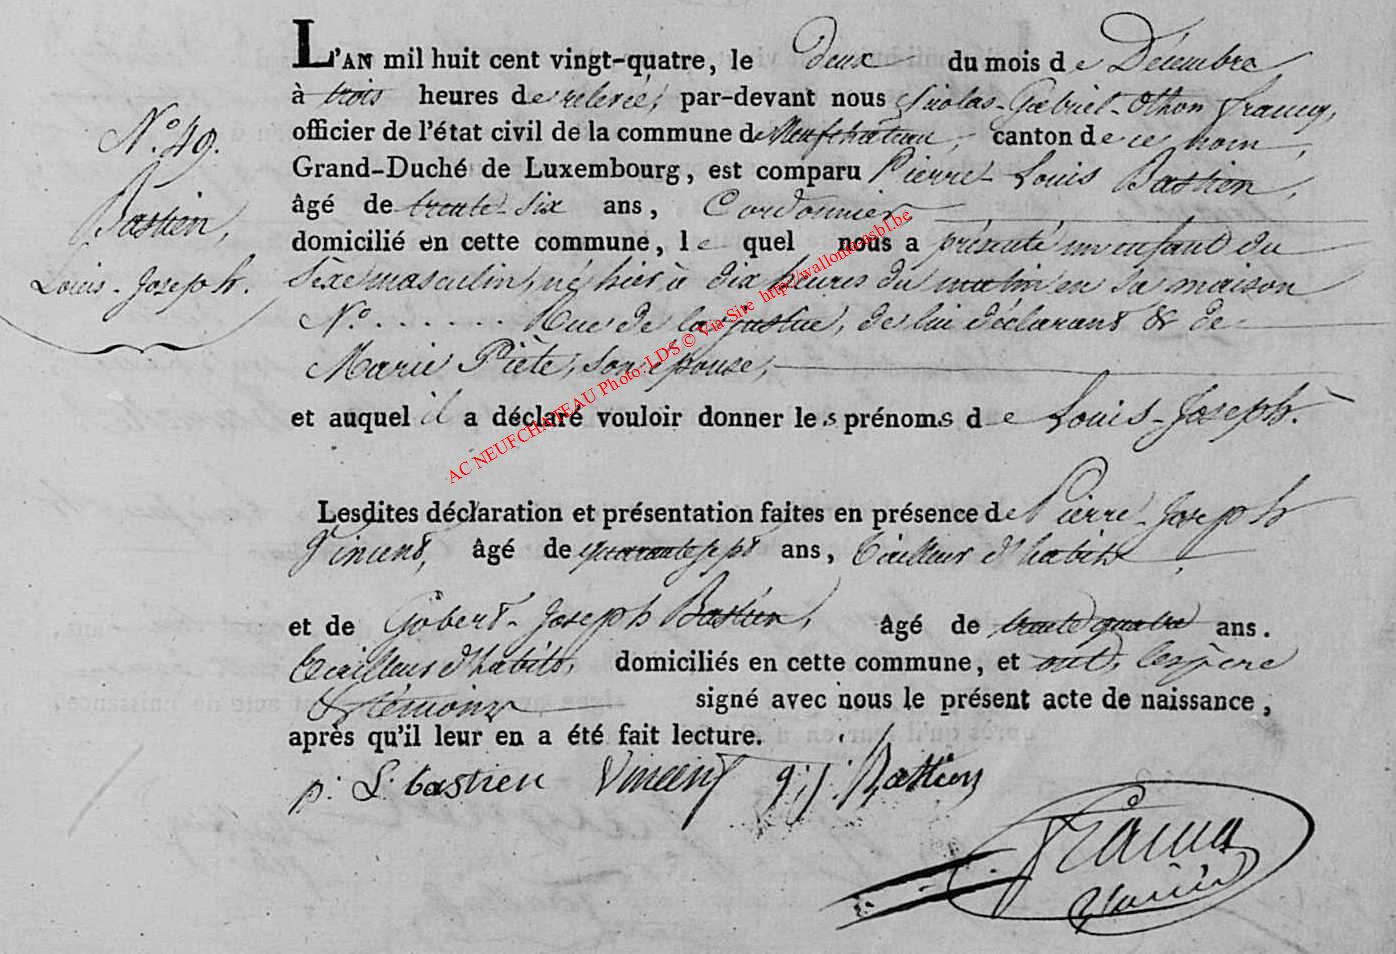 L'AN mil huit cent vingt-quatre, le deux du mois de Décembre
à trois heures de relevée, par-devant nous Nicolas-Gabriel-Othon
officier de l'état civil de la commune de Neufchateau, canton de ce nom,
N.° 49.
Grand-Duché de Luxembourg, est comparu Pierre-Louis Bastien,
Bastien,
âgé de trente-six ans, Cordonnier
Louis-Joseph.
domicilié en cette commune, le quel nous a présenté un enfant du
sèxe masculin, né hier à dix heures du matin en sa maison
N.° . . . . . . . Rue de la justice, de lui déclarant & de
Marie Piète, son épouse,
et auquel il a déclaré vouloir donner les prénoms de Louis-Joseph.
AC NEUFCHATEAU Photo-LDS © Via Site http://wallonia.asbl.be
Lesdites déclaration et présentation faites en présence de Pierre-Joseph
Vincent, âgé de quarante sept ans, tailleur d'habits,
et de Gobert-Joseph Bastien, âgé de trente quatre ans.
tailleur d'habits, domiciliés en cette commune, et ont, les père
& témoins signé avec nous le présent acte de naissance,
après qu'il leur en a été fait lecture.
p. L. bastien Vincent g. j. Bastien